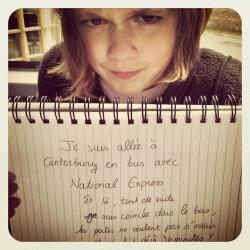 Je suis allée à
Canterbury en bus avec
National Express...
Et là, tout de suite
je suis coincée dans le bus,
les portes ne veulent pas s'ouvrir
déjà 30 minutes!